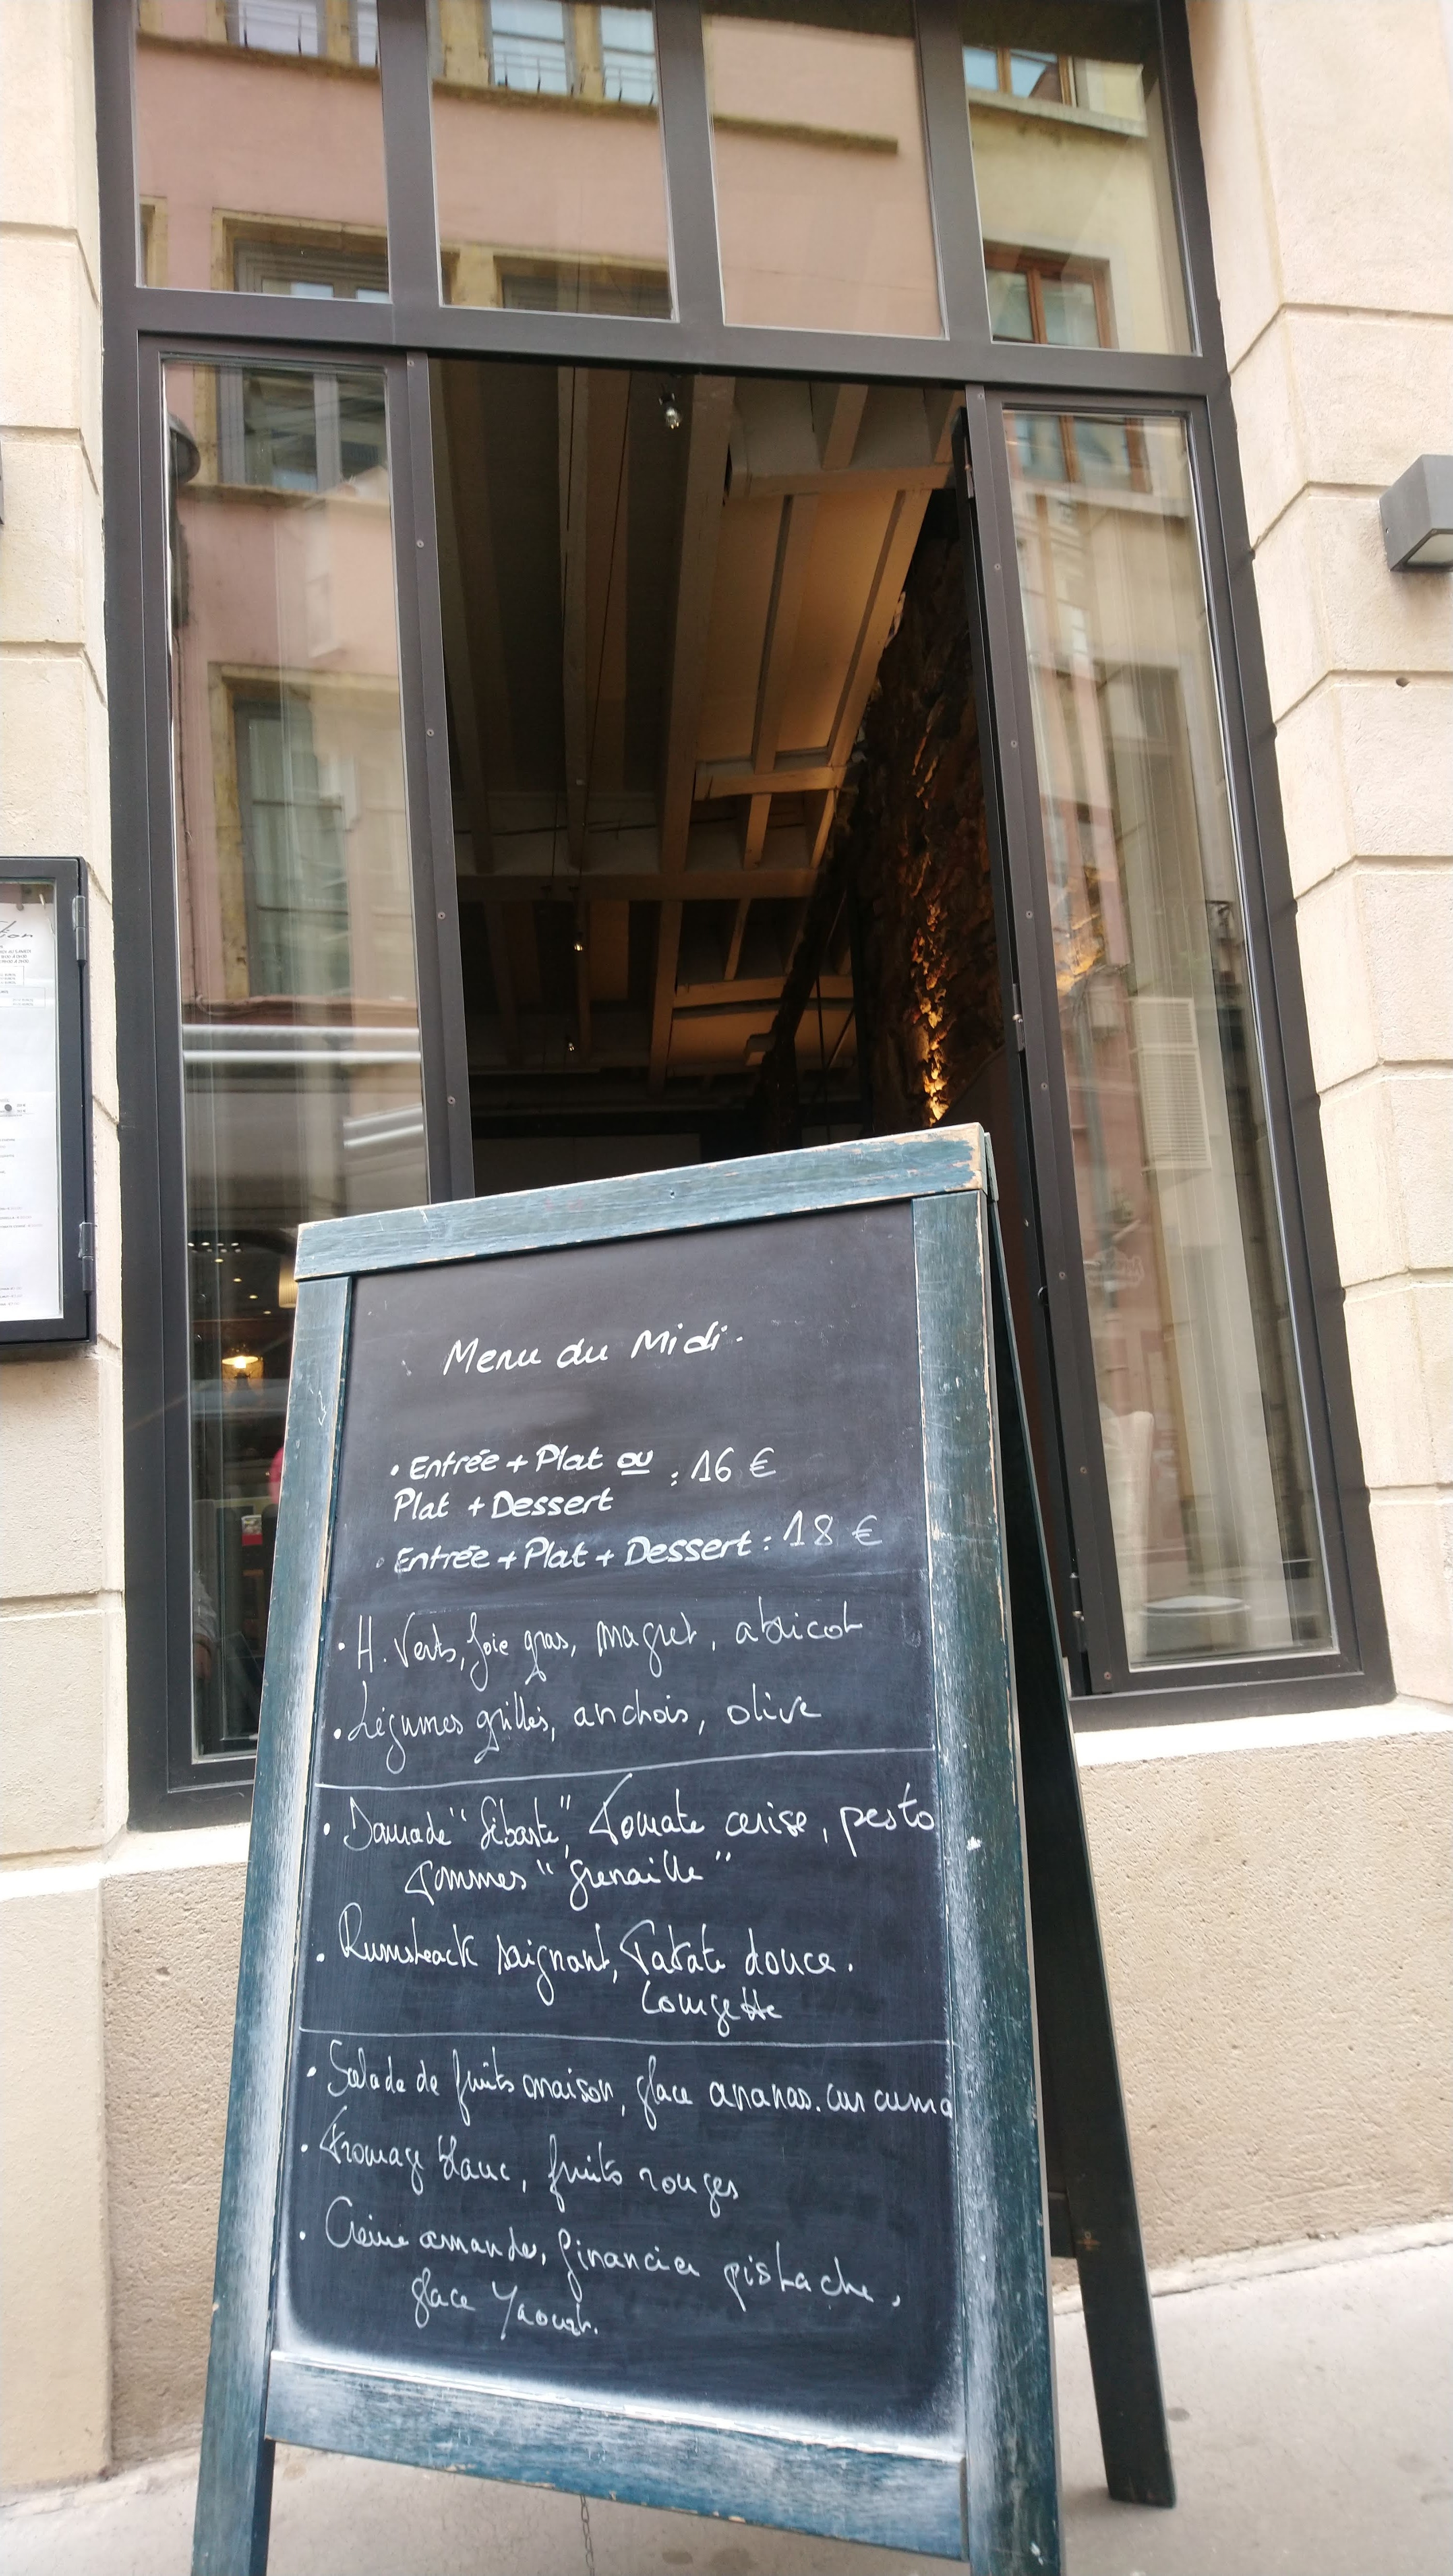 Menu du Midi.
• Entrée + Plat ou : 16 €
Plat + Dessert
• Entrée + Plat + Dessert : 18 €
• H. Verts, foie gras, magret, abricot
• Légumes grillés, anchois, olive
• Daurade "Sébaste", Tomate cerise, pesto
Pommes "grenaille"
• Rumsteack saignant, Patate douce.
Courgette
• Salade de fruits maison, glace ananas. curcuma
• Fromage blanc, fruits rouges
• Crème amandes, financier pistache,
glace Yaourt.